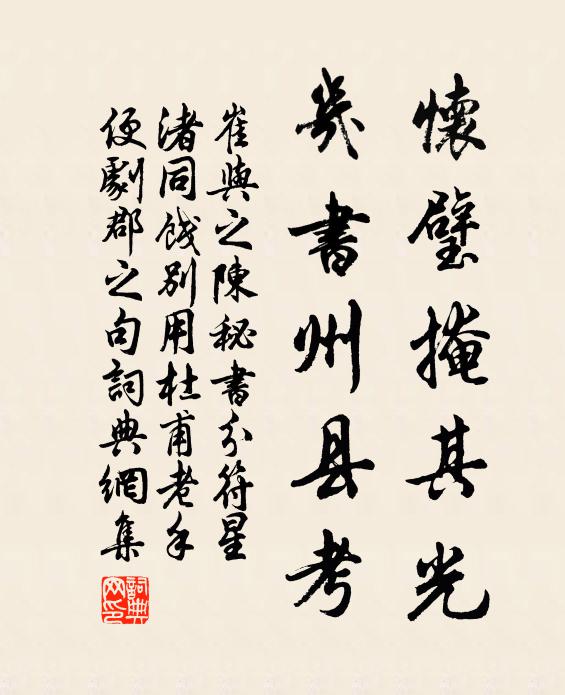 懷璧掩其光
幾書州县考
崔與之陳秘書分符星
渚同餞別用杜甫老手
便劇郡之句詞典網集
詞典網印